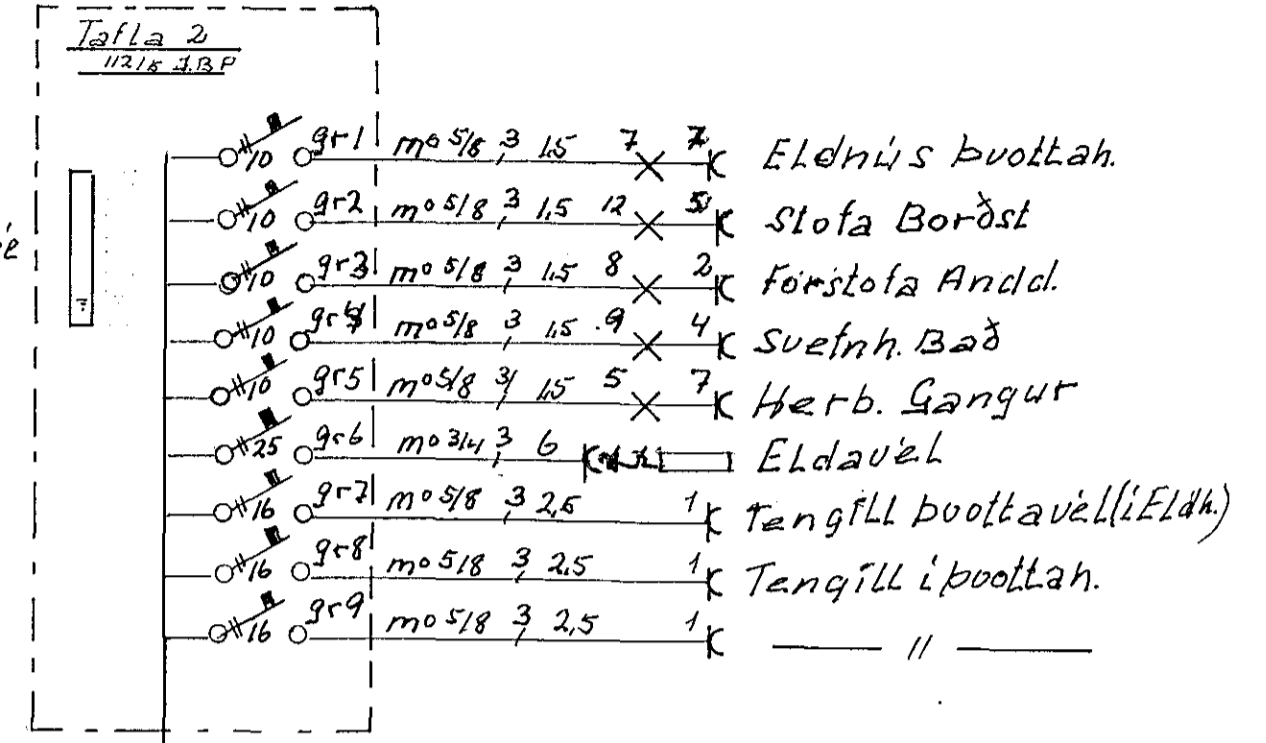 Tafla 2
10 gr1 m⌀ 5/8 3 1,5 7 7 Eldhús þvottah.
10 gr2 m⌀ 5/8 3 1,5 12 5 Stofa Borðst
10 gr3 m⌀ 5/8 3 1,5 8 2 Forstofa Andd.
10 gr4 m⌀ 5/8 3 1,5 9 4 Svefnh. Bað
10 gr5 m⌀ 5/8 3 1,5 5 7 Herb. Gangur
25 gr6 m⌀ 3/4 3 6 Eldavél
16 gr7 m⌀ 5/8 3 2,5 1 Tengill þvottavél (í Eldh.)
16 gr8 m⌀ 5/8 3 2,5 1 Tengill í þvottah.
16 gr9 m⌀ 5/8 3 2,5 1 — 〃 —